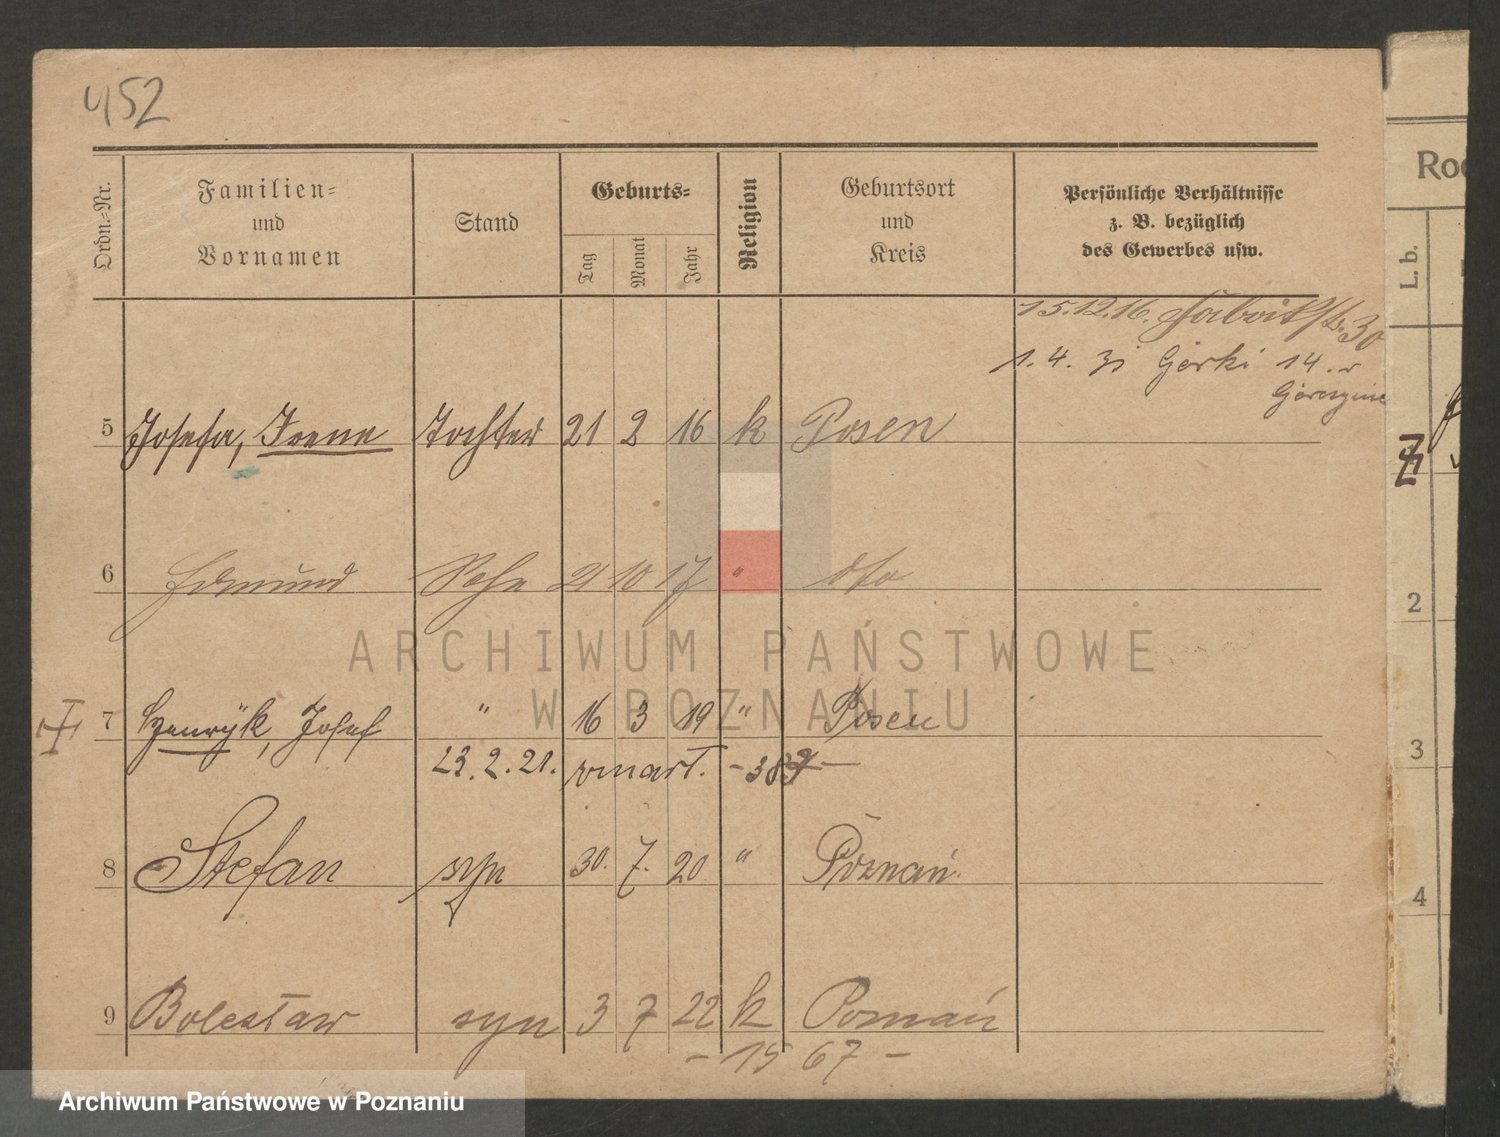 452
Ordn.-Nr. Familien- und Vornamen Stand Geburts- Tag Monat Jahr Religion Geburtsort und Kreis Persönliche Verhältnisse z. B. bezüglich des Gewerbes usw.
15.12.16. 30
1. 4. Gorki 14.
5 Josefa, Irene Tochter 21 2 16 k Posen
6 Edmund Sohn 21 10 17 " dto
7 Henryk, Josef " 16 3 19 " Posen
23.2.21. zmarł.
8 Stefan syn 30. 7. 20 " Poznań.
9 Bolesław syn 3 7 22 k Poznań
- 1567 -
L. b.
2
3
4
ARCHIWUM PAŃSTWOWE
W POZNANIU
Archiwum Państwowe w Poznaniu